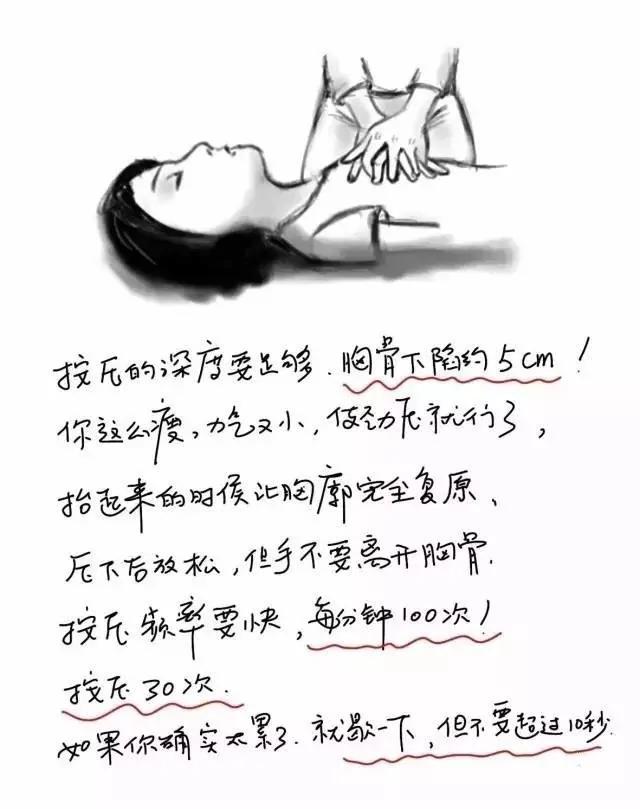 按压的深度要足够.胸骨下陷约5cm!
你这么瘦,力气又小,使劲压就行了,
抬起来的时侯让胸廓完全复原、
压下后放松,但手不要离开胸骨.
按压频率要快,每分钟100次!
按压30次.
如果你确实太累了.就歇一下,但不要超过10秒.